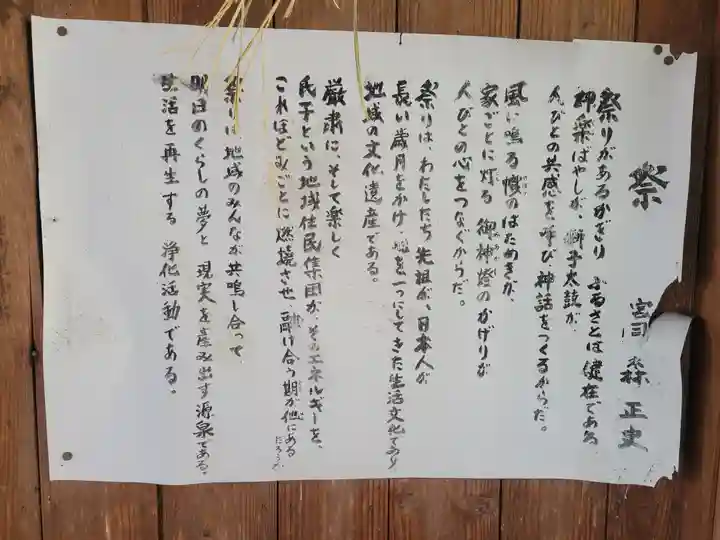 祭
宮司 森 正史
祭りがあるかぎり ふるさとは健在である
神楽ばやしが、獅子太鼓が、
人びとの共感を呼び神話をつくるからだ。
風に鳴る幟のはためきが、
家ごとに灯る 御神燈のかげりが
人びとの心をつなぐからだ。
祭りは、わたしたち先祖が、日本人が
長い歳月をかけ 地を一つにしてきた生活文化であり
地域の文化遺産である。
厳粛に、そして楽しく
氏子という地域住民集団が、そのエネルギーを、
これほどみごとに燃焼させ、融け合う期が他にある
だろうか
祭りは 地域のみんなが共鳴し合って
明日のくらしの夢と 現実を産み出す源泉である。
生活を再生する 浄化活動である。